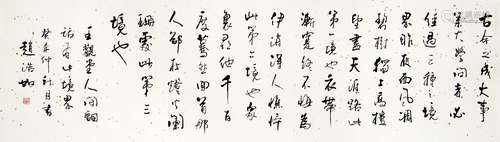 古今之成大事
業大學問者必
經過三種之境
界昨夜西風凋
碧樹獨上高樓
望盡天涯路此
第一境也衣帶
漸寬終不悔為
伊消得人憔悴
此第二境也眾
裏尋他千百
度驀然回首那
人卻在燈火闌
珊處此第三
境也
王觀堂人間詞
話有此境界
仲秋月書
趙浩如